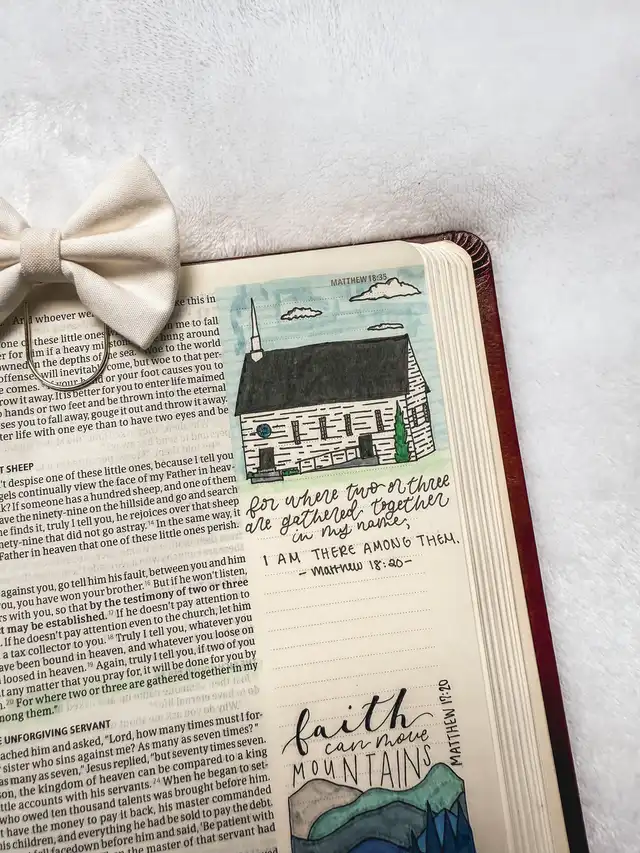 MATTHEW 18:35
ke this in
And whoever we
n me to fall
one of these little one
ung around
er for him if a heavy m
owned in the depths of the sea. Woe to the world
offenses. For offenses will inevitably come, but woe to that per-
comes. If your hand or your foot causes you to
row it away. It is better for you to enter life maimed
o hands or two feet and be thrown into the eternal
ses you to fall away, gouge it out and throw it away.
ter life with one eye than to have two eyes and be
T SHEEP
't despise one of these little ones, because I tell you
gels continually view the face of my Father in heav-
k? If someone has a hundred sheep, and one of them
ave the ninety-nine on the hillside and go and search
he finds it, truly I tell you, he rejoices over that sheep
nety-nine that did not go astray. 14 In the same way, it
Father in heaven that one of these little ones perish.
against you, go tell him his fault, between you and him
you, you have won your brother. 16 But if he won't listen,
rs with you, so that by the testimony of two or three
t may be established. 17 If he doesn't pay attention to
. If he doesn't pay attention even to the church, let him
a tax collector to you. 18 Truly I tell you, whatever you
ave been bound in heaven, and whatever you loose on
n loosed in heaven. 19 Again, truly I tell you, if two of you
t any matter that you pray for, it will be done for you by
. 20 For where two or three are gathered together in my
mong them."
E UNFORGIVING SERVANT
ached him and asked, "Lord, how many times must I for-
sister who sins against me? As many as seven times?"
as many as seven," Jesus replied, "but seventy times seven.
son, the kingdom of heaven can be compared to a king
ttle accounts with his servants. 24 When he began to set-
who owed ten thousand talents was brought before him.
't have the money to pay it back, his master commanded
is children, and everything he had be sold to pay the debt.
fell facedown before him and said, 'Be patient with
the master of that servant had
for where two or three
are gathered together
in my name,
I AM THERE AMONG THEM.
- Matthew 18:20 -
faith
can move
MOUNTAINS
MATTHEW 17:20